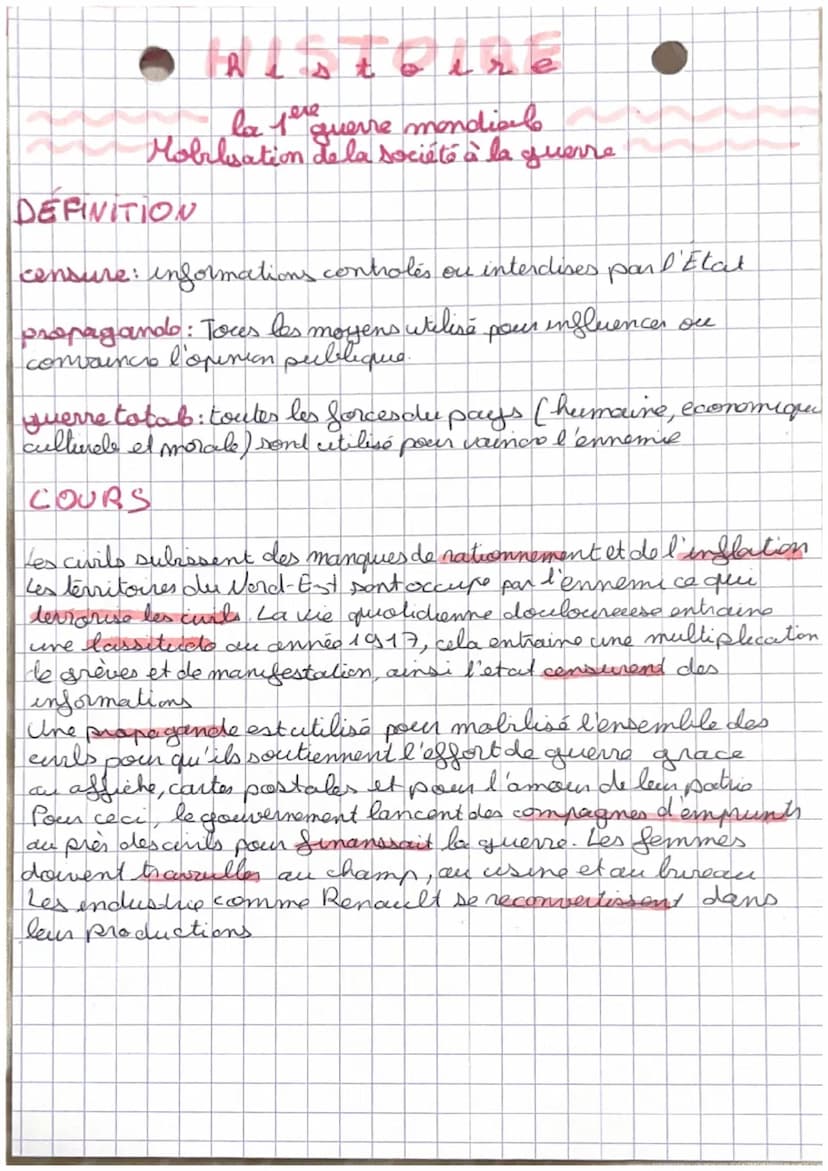 HISTOIRE
Histoire
la 1ère guerre mondiale
Mobilisation de la société à la guerre
DÉFINITION
censure : informations controlés ou interdises par l'État
propagande : Tous les moyens utilisé pour influencer ou
convaincre l'opinion publique.
guerre totale : toutes les forces du pays (humaine, economique
culturele et morale) sont utilisé pour vaincre l'ennemie
COURS
Les civils subissent des manques de rationnement et de l'inflation
Les térritoires du Nord-Est sont occupe par l'ennemi ce qui
terrorise les civils. La vie quotidienne douloureuse entraine
une lassitude au année 1917, cela entraine une multiplication
de grèves et de manifestation, ainsi l'etat censurend des
informations
Une propagande est utilisé pour mobilisé l'ensemble des
civils pour qu'ils soutiennent l'effort de guerre grace
au affiche, cartes postales et pour l'amour de leur patrie
Pour ceci, le gouvernement lancent des compagnes d'emprunts
au près des civils pour finanssait la guerre. Les femmes
doivent travailler au champ, au usine et au bureau
Les industrie comme Renault se reconvertissent dans
leur productions